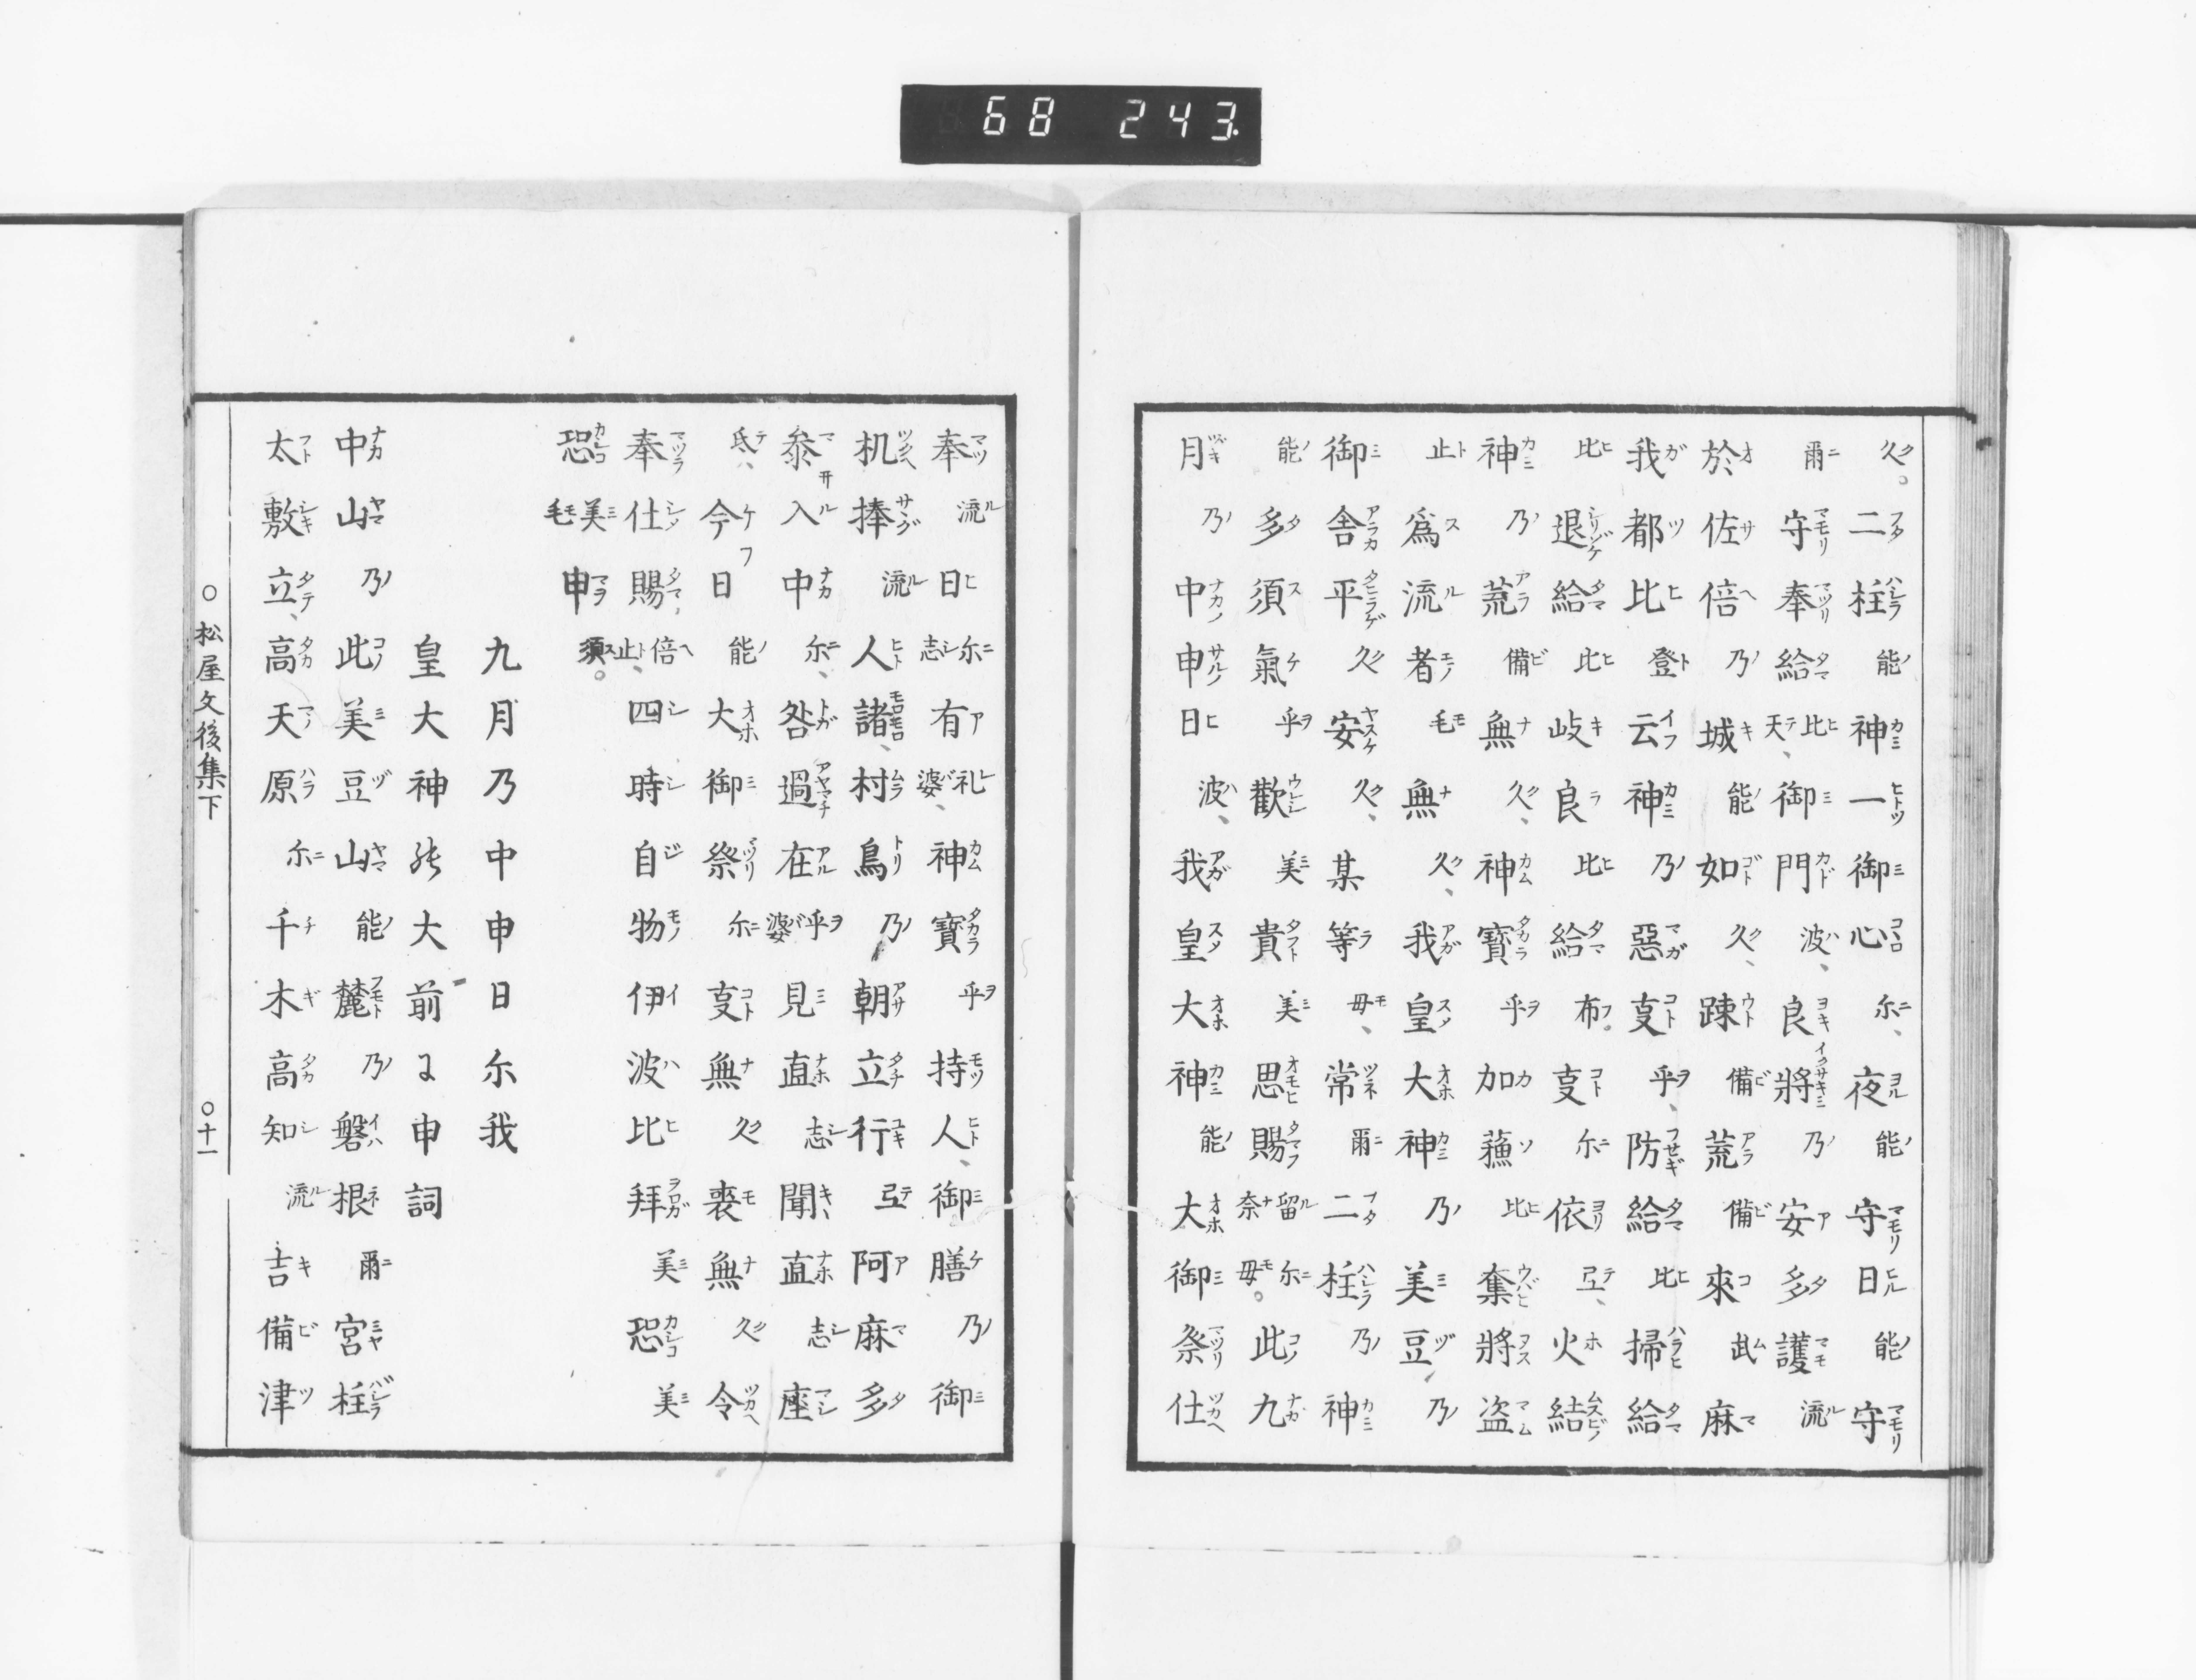 68 243
久。二柱能神一御心尓、夜能守日能守
爾守奉給比天、御門波、良將乃安多護流
於佐倍乃城能如久、踈備荒備來武麻
我都比登云神乃惡㕝乎、防給比掃給
比退給比岐良比給布。㕝尓依弖、火結
神乃荒備無久、神寶乎加蘓比奪將盗
止爲流者毛無久、我皇大神乃美豆乃
御舎平久安久、某等毋、常爾二柱乃神
能多須氣乎歡美貴美思賜留尓奈毋。此九
月乃中申日波、我皇大神能大御祭仕
奉流日尓志有礼婆、神寶乎持人、御膳乃御
机捧流人諸、村鳥乃朝立行弖阿麻多
叅入中尓、咎過在乎婆見直志聞直志座
氐、今日能大御祭尓㕝無久喪無久令
奉仕賜倍止、四時自物伊波比拜美恐美
恐美毛申須。
九月乃中申日尓我
皇大神能大前に申詞
中山乃此美豆山能麓乃磐根爾宮柱
太敷立、高天原尓千木高知流吉備津
○松屋文後集下 ○十一